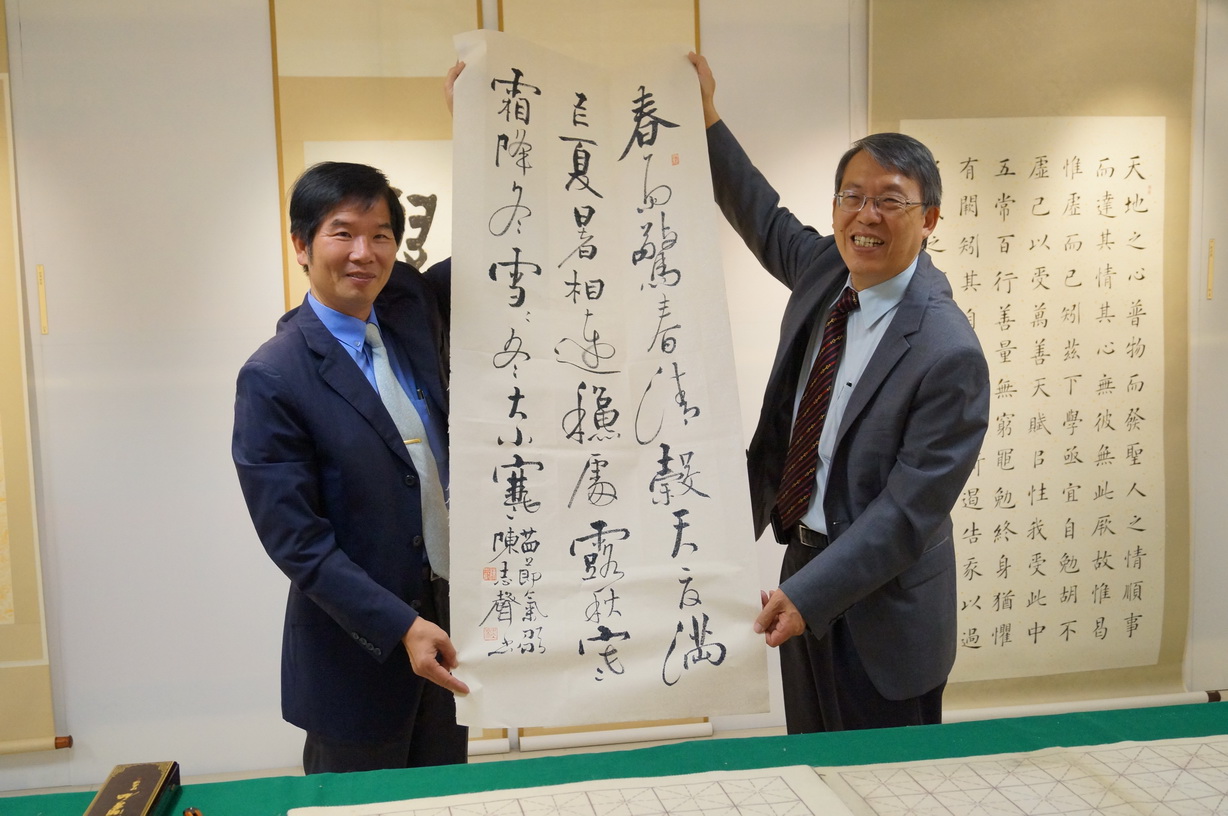 春雨驚春清穀天夏滿
芒夏暑相連穐處露秋寒
霜降冬雪〻冬大小寒
廿四節氣歌
陳志聲書
天地之心普物而發聖人之情順事
而達其情其心無彼無此厥故惟曷
惟虛而已矧茲下學亟宜自勉胡不
虛己以受萬善天賦㠯性我受此中
五常百行善量無窮黽勉終身猶懼
有闕矧其自 過告 以過
之 之